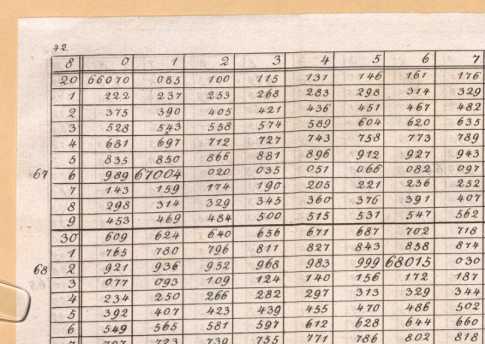 42
8 0 1 2 3 4 5 6 7
20 66070 085 100 115 131 146 161 176
1 222 237 253 268 283 298 314 329
2 375 390 405 421 436 451 467 482
3 528 543 558 574 589 604 620 635
4 681 697 712 727 743 758 773 789
5 835 850 866 881 896 912 927 943
67 6 989 67004 020 035 051 066 082 097
7 143 159 174 190 205 221 236 252
8 298 314 329 345 360 376 391 407
9 453 469 484 500 515 531 547 562
30 609 624 640 656 671 687 702 718
1 765 780 796 811 827 843 858 874
68 2 921 936 952 968 983 999 68015 030
3 077 093 109 124 140 156 172 187
4 234 250 266 282 297 313 329 344
5 392 407 423 439 455 470 486 502
6 549 565 581 597 612 628 644 660
7 707 723 739 755 771 786 802 818